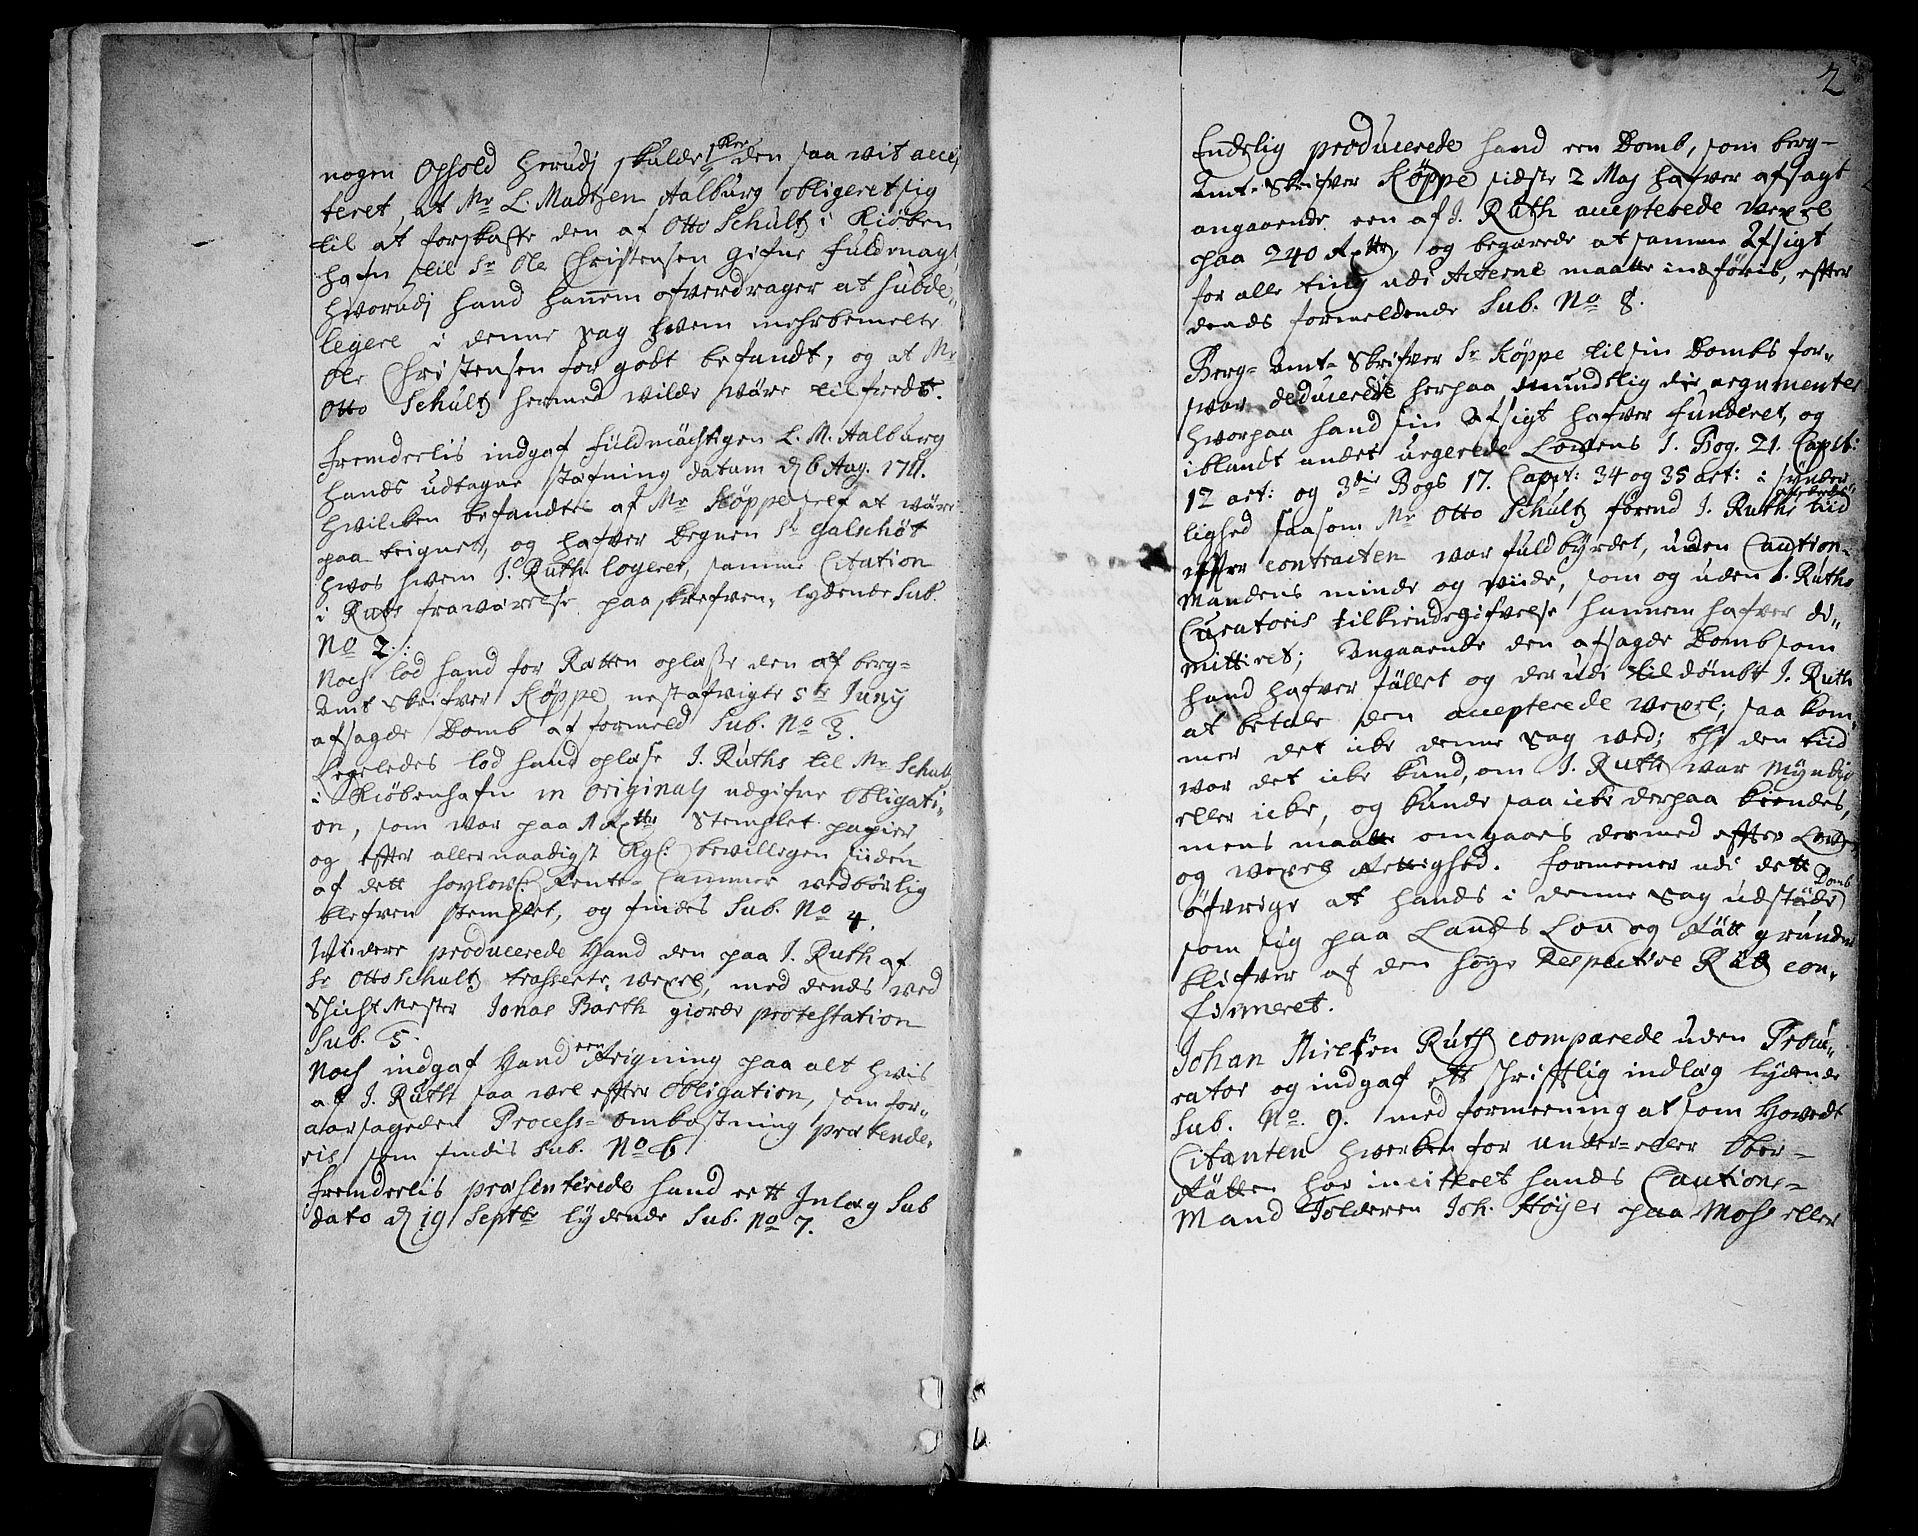 nogen Ophold herudj skulde skee den saa wit accep
teret, at Mr L. Madtzen Aalburg obligeret sig
til at forskaffe den af Otto Schultz i Kiøben
hafn til Sr Ole Christensen gifne fuldmagt,
hvorudj hand hannem ofverdrager at subde„
legere i denne sag hvem mehrbemelte
Ole Christensen for godt befandt, og at Mr
Otto Schultz hermed wilde være tilfredts.
Fremdeelis indgaf fuldmächtigen L. M. Aalburg
hands udtagne stefning datum d 6 Aug. 1711.
hvilcken befandtes af Mr Köppe self at wäre
paa teignet, og hafver Degnen Sr Galschøt
hvos hvem J. Ruth logerer, samme Citation
i Ruts frawærelse paaskrefven, lydende Sub.
No 2.
Noch lod hand for Rætten oplæsse den af berg=
Amt Skrifver Köppe nest afvigte 5te Junij
afsagde Domb af formeld Sub. No 3.
Ligeledes lod hand oplæse J. Ruths til Mr Schultz
i Kiöbenhafn in Originalj udgifne Obligati„
on, som war paa 1 Rdr Stemplet papier,
og effter allernaadigst Kgl: bevillegen siiden
af dett höylofl: Rente-Cammer vedbörlig
blefven stemplet, og findes Sub. No 4.
Wiidere producerede Hand den paa J. Ruth af
Sr Otto Schultz trasserte wexel, med dends ved
Schicht Mester Jonas Barth giorde protestation
Sub. 5.
Noch indgaf Hand een Reigning paa alt hvis
af J. Ruth saa wel effter Obligation, som for„
aarsageden Process-ombostning prætende„
ris, som findis Sub. No 6
Fremdeelis præsenterede hand eett Inlæg Sub
dato d 19 Septbr lydende Sub. No 7.
2
Endelig producerede hand een Domb, som berg=
Amt-Skrifver Köppe sidste 2 Maj hafver afsagt
angaaende een af J. Ruth accepterede wexel
paa 240 Rdr, og begærede at samme Afsigt
for alle ting udi Acterne maatte indføris, effter
dends formeldende Sub. No 8.
Berg-Amt-Skrifver Sr Köppe til sin Dombs for„
svar deducerede herpaa mundtlig die argumenter
hvorpaa hand sin Afsigt hafver funderet, og
iblandt andet urgerede Lovens 1. Bog. 21. Capit:
12 art: og 3die Bogs 17. Capit: 34 og 35 art: i synder„
lighed saasom Mr Otto Schultz förend J. Ruths tiid
effter contracten war fuldbyrdet, uden Caution-
Mandens minde og viide, som og uden J. Ruths
Curatoris tilkiendegifvelse hannem hafver di„
mitteret; Angaaende den afsagde Domb som
hand hafver fället og derudi tildömbt J. Ruth
at betale den accepterede wexel; saa kom„
mer det icke denne sag wed; thj den tiid
war det icke kund, om J. Ruth war Myndig
eller icke, og kunde saa icke derpaa kiendes,
mens maatte omgaaes dermed effter Loven
og wexel Rettighed. Formeener udi dett
öfvrige at hands i denne sag udstæde Domb
som sig paa Lands Lou og Rätt grunder
blifver af den höye Respective Rät con„
firmeret.
Johan Nielsen Ruth comparede uden Procu„
rator og indgaf ett skrifftlig indlæg lydende
Sub. No. 9. med formeening at som Hovedt
Citanten hwerken for under- eller Ober-
Rätten har inciteret hands Cautions-
Mand Tolderen Joh. Höyer paa Moss eller